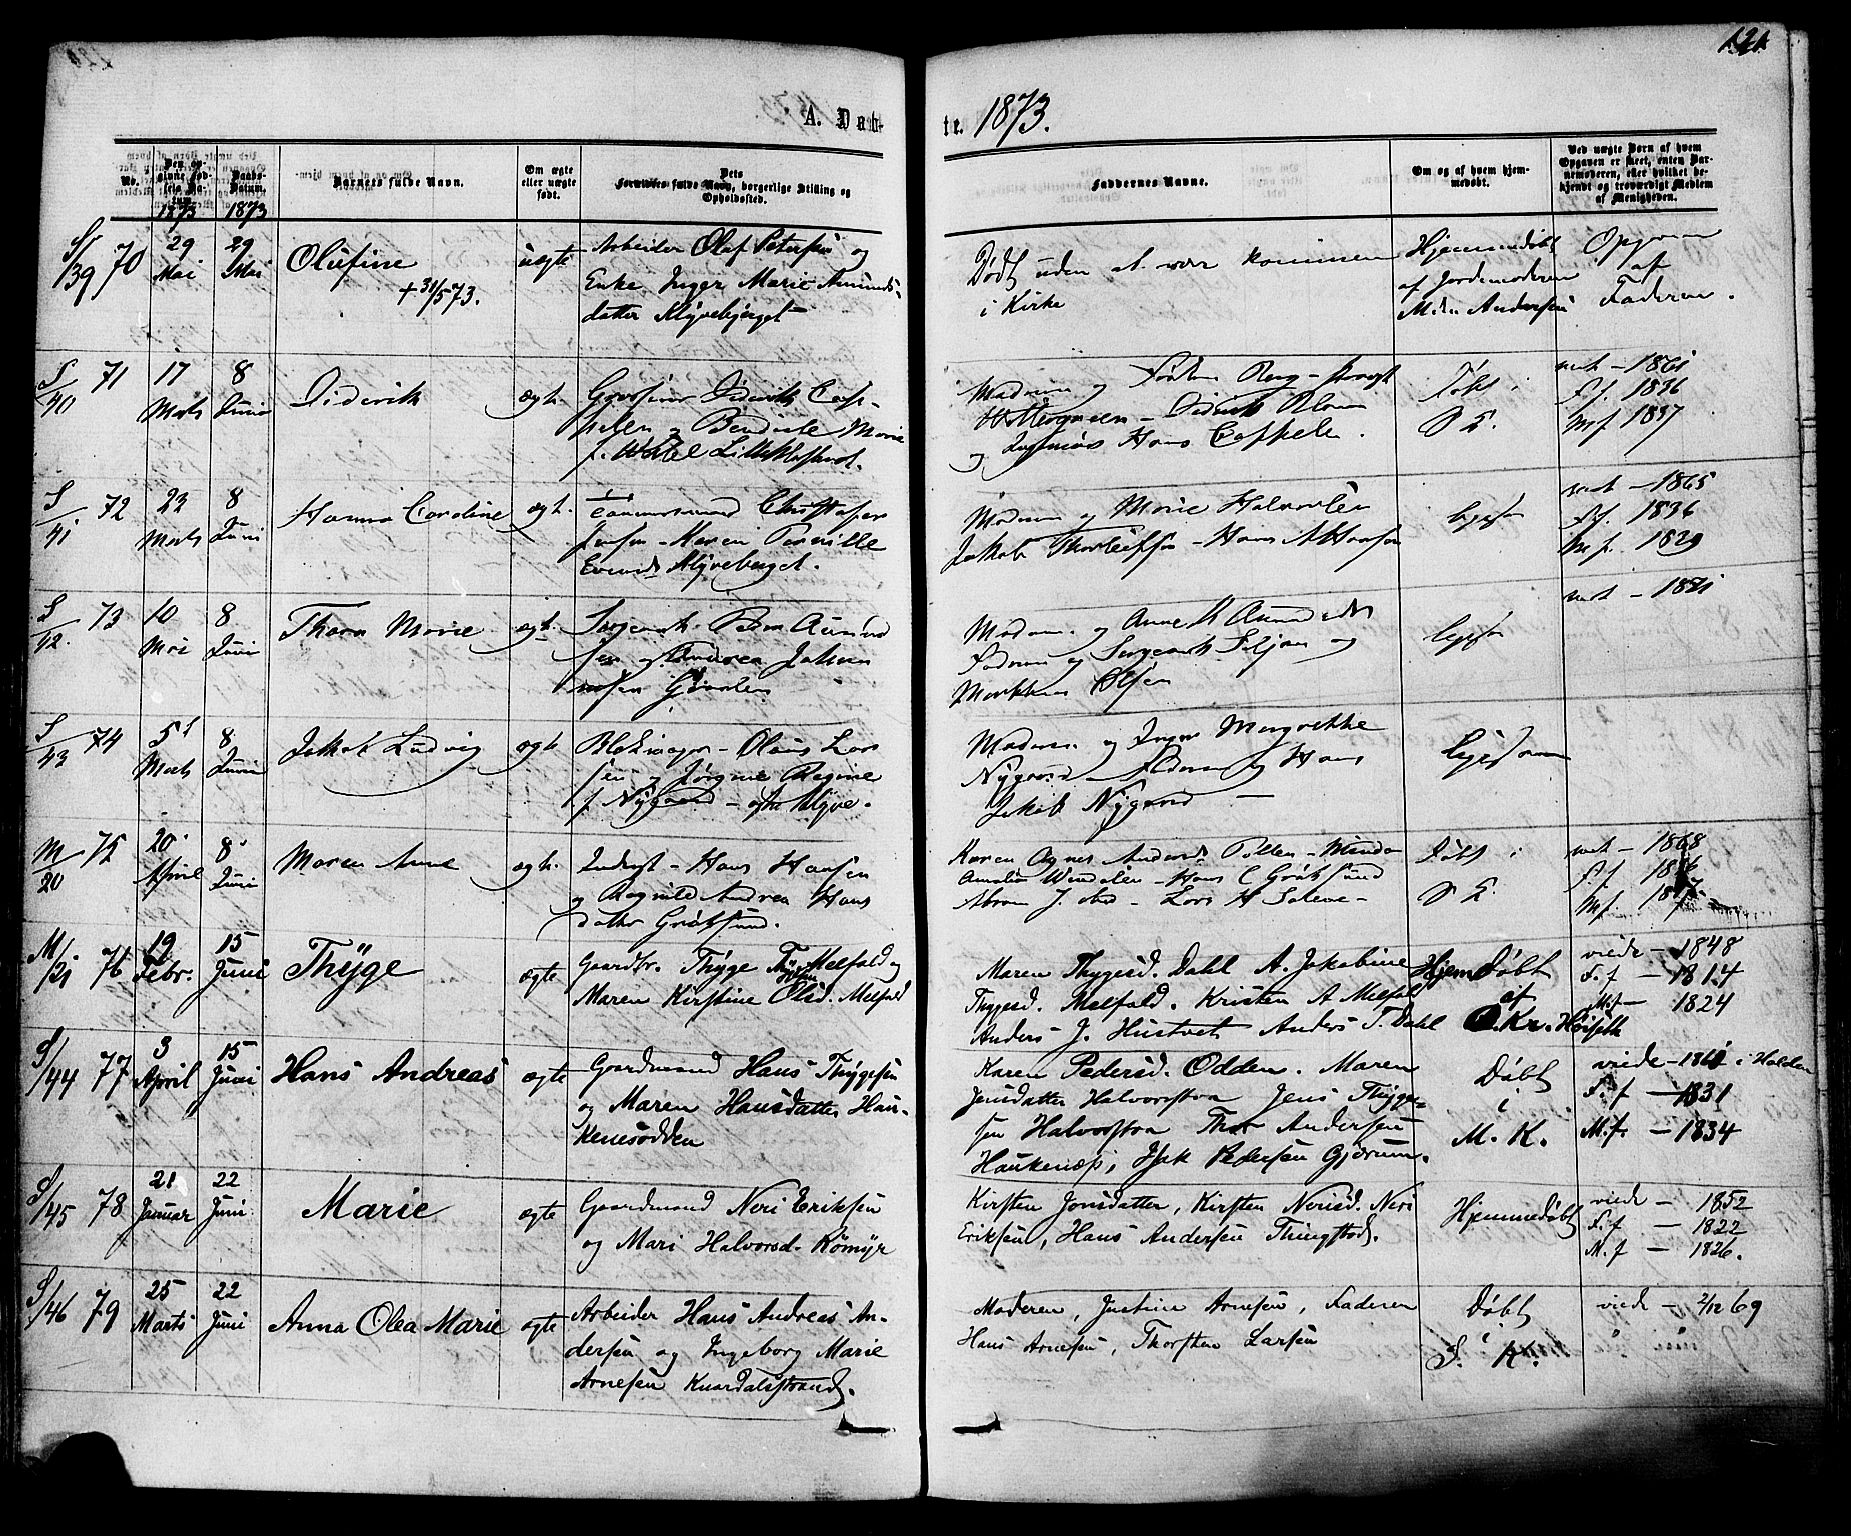 121
A. Døb-
te. 1873.
No.
Den opgivne Fødsels Datum.
1873
Daabs-Datum.
1873
Barnets fulde Navn.
Om ægte eller uægte født.
Dets Forældres fulde Navn, borgerlige Stilling og Opholdssted.
Faddernes Navne.
Om og af hvem hjemmedøbt.
Ved uægte Børn af hvem Opgaven er skeet, enten Barnemoderen, eller hvilket bekjendt og troværdigt Medlem af Menigheden.
S/39 70
29 Mai
29 Mai
Olufine
+ 31/5 73.
uægte
Arbeider Olaf Petersen og
Enke Inger Marie Amunds-
datter Klyvebjerget
Død uden at være kommen
i Kirke
Hjemmedøbt
af Jordemoderen
Andersen
Opgave
af
Faderen.
S/40 71
17 Marts
8 Juni
Diderik
ægt.
Grosserer Diderik Cap-
pelen og Benedicte Marie
Madmen og
og Hans Cappelen.
Døbt i
S K.
viet - 1861
F.f. 1836
M.f. 1837
S/41 72
23 Marts
8 Juni
Hanna Caroline
ægt.
Tømmermand Christopher
Jensen - Karen Pernille
Evends Klyveberget.
Madmen og Marie Halvorsen
Jakob Thorleifsen - Hans A Hansen
ligesaa
viet - 1865
F.f. 1836
M.f. 1829
S/42. 73
10 Mai
8 Juni
Thora Marie
ægt.
Sergeant Peter Aamund
sen og Andrea Johan
nesen
Madmen og Anne M Aamundsdtr
Fadmen og Sergeant Siljan og
Olsen
ligesaa
viet - 1871
S/43 74
5 Marts
8 Juni
Jakob Ludvig
ægt.
Blokmager - Olaus Lar
sen og Jørgine Regine
f. Nygaard - Klyve.
Madmen og Inger Margrethe
Nygaard - Fadmen og Hans
Jakob Nygaard
ligesaa
M/20 75
20 April
8 Juni
Maren Anne
ægt.
Inderst - Hans Hansen
og Ragnild Andrea Hans
datter Gråtsund.
Karen Agnes Anders - Minda
Amalie - Hans C Gråtsund
Abram - Lars H
Døbt i
S K.
viet - 1868
F.f.
M.f.
M/21 76
19 Febr.
15 Juni
Thyge
ægte
Gaardbr. Thyge Thyges. Melfald og
Maren Kirstine Olsd. Melfald
Maren Thygesd. Dahl A. Jakobine
Thygesd. Melfald. Kristen A Melfald
Anders J. Hustvet Anders T. Dahl
Hjemdøbt
af
O. Kr. Høiseth
viede - 1848
F.f - 1814
M.f - 1824
S/44 77
3 April
15 Juni
Hans Andreas
ægte
Gaardmand Hans Thygesen
og Maren Hansdatter Hau-
kenesødden
Karen Pedersd. Odden. Maren
Jensdatter Halvorstva Jens Thyge-
sen Halvorstva Thor Andersen
Haukenæs, Isak Pedersen Gjærum.
Døbt
i
M. K.
viede - 1861 i Holden
F.f - 1831
M.f. - 1834
S/45 78
21 Januar
22 Juni
Marie
ægte
Gaardmand Neri Eriksen
og Mari Halvorsd. Rømyr
Kirsten Jonsdatter, Kirsten Nerisd. Neri
Eriksen, Hans Andersen Tingstad.
Hjemmedøbt
viede - 1852
F.f - 1822
M.f - 1826.
S/46 79
25 Marts
22 Juni
Anna Olea Marie
ægte
Arbeider Hans Andreas An-
dersen og Ingeborg Marie
Arnesen Knardalsstrand.
Moderen, Justine Arnesen, Faderen
Hans Arnesen, Thorsten Larsen
Døbt
i
S. K.
viede - 2/12 69